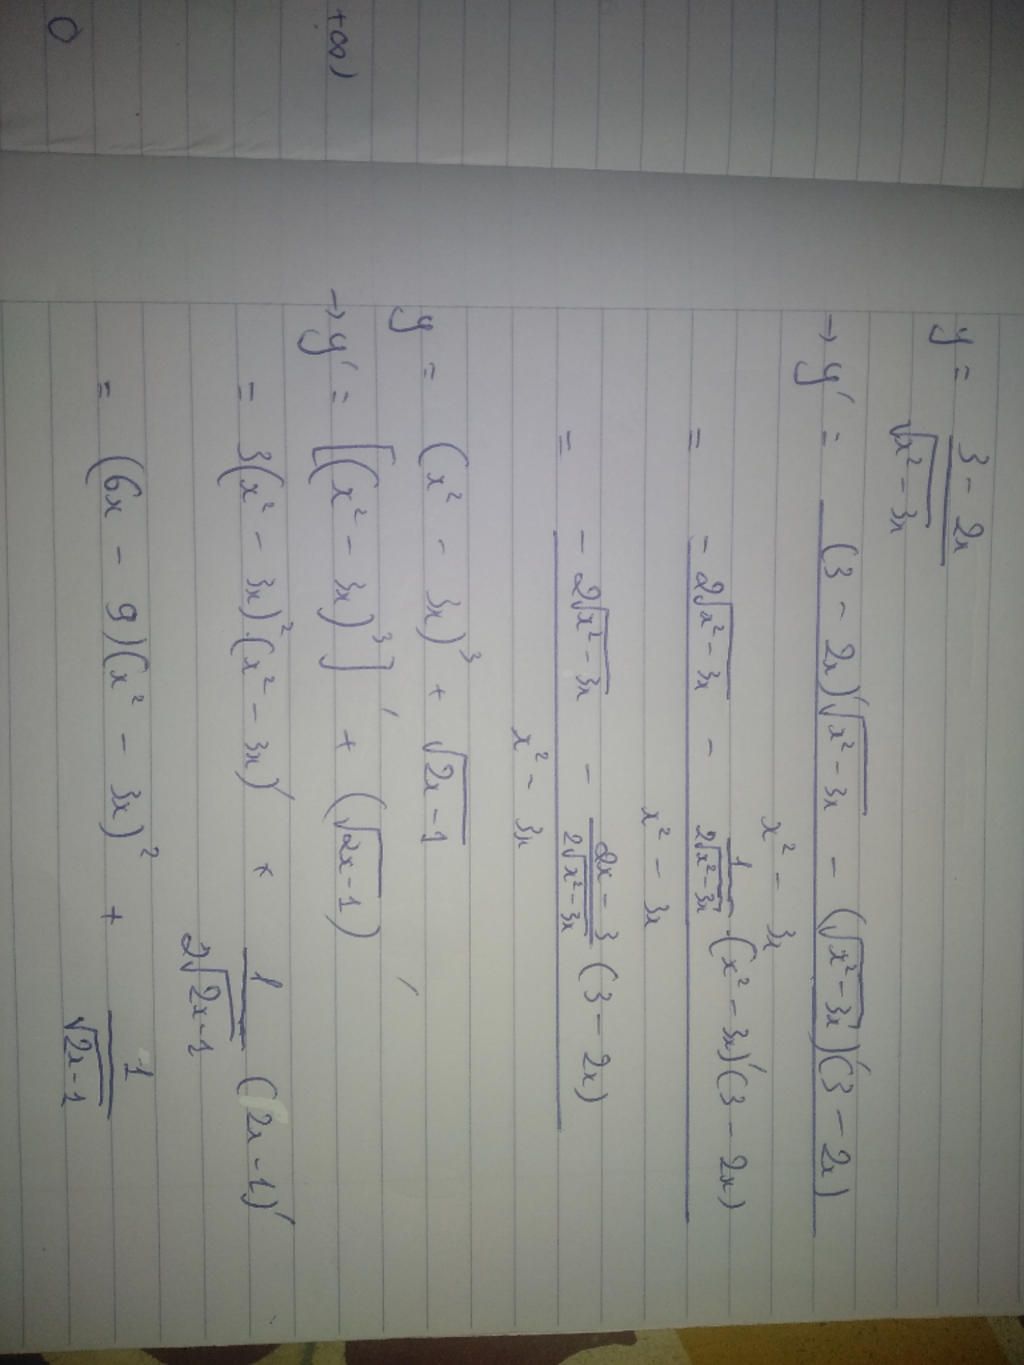 +∞)
0
y = \frac{3 - 2x}{\sqrt{x^2 - 3x}}
→ y' = \frac{(3 - 2x)'\sqrt{x^2 - 3x} - (\sqrt{x^2 - 3x})'(3 - 2x)}{x^2 - 3x}
= \frac{-2\sqrt{x^2 - 3x} - \frac{1}{2\sqrt{x^2 - 3x}} \cdot (x^2 - 3x)'(3 - 2x)}{x^2 - 3x}
= \frac{-2\sqrt{x^2 - 3x} - \frac{2x - 3}{2\sqrt{x^2 - 3x}}(3 - 2x)}{x^2 - 3x}
y = (x^2 - 3x)^3 + \sqrt{2x - 1}
→ y' = [(x^2 - 3x)^3]' + (\sqrt{2x - 1})'
= 3(x^2 - 3x)^2 \cdot (x^2 - 3x)' + \frac{1}{2\sqrt{2x - 1}}(2x - 1)'
= (6x - 9)(x^2 - 3x)^2 + \frac{1}{\sqrt{2x - 1}}